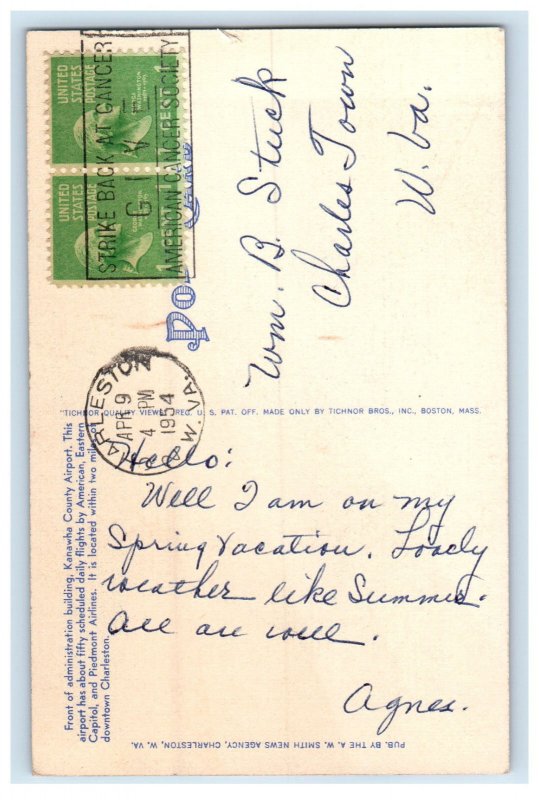 UNITED
STATES
POSTAGE
UNITED
STATES
POSTAGE
STRIKE BACK AT CANCER
GIVE
AMERICAN CANCER SOCIETY
CHARLESTON
APR 9
4 PM
1954
W. VA.
Wm. B. Stuck
Charles Town
W. Va.
"TICHNOR QUALITY VIEWS," REG. U. S. PAT. OFF. MADE ONLY BY TICHNOR BROS., INC., BOSTON, MASS.
Front of administration building, Kanawha County Airport. This
airport has about fifty scheduled daily flights by American, Eastern
Capitol, and Piedmont Airlines. It is located within two miles of
downtown Charleston.
Hello:
Well I am on my
Spring Vacation. Lovely
weather like Summer.
All are well.
Agnes.
PUB. BY THE A. W. SMITH NEWS AGENCY, CHARLESTON, W. VA.